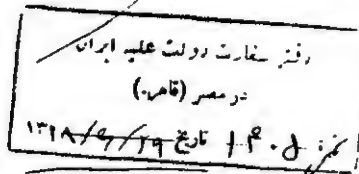 دفتر سفارت دولت علیه ایران
در مصر (قاهره)
نمرة ۱۴۰۸ تاریخ ۱۳۱۸/۶/۲۹